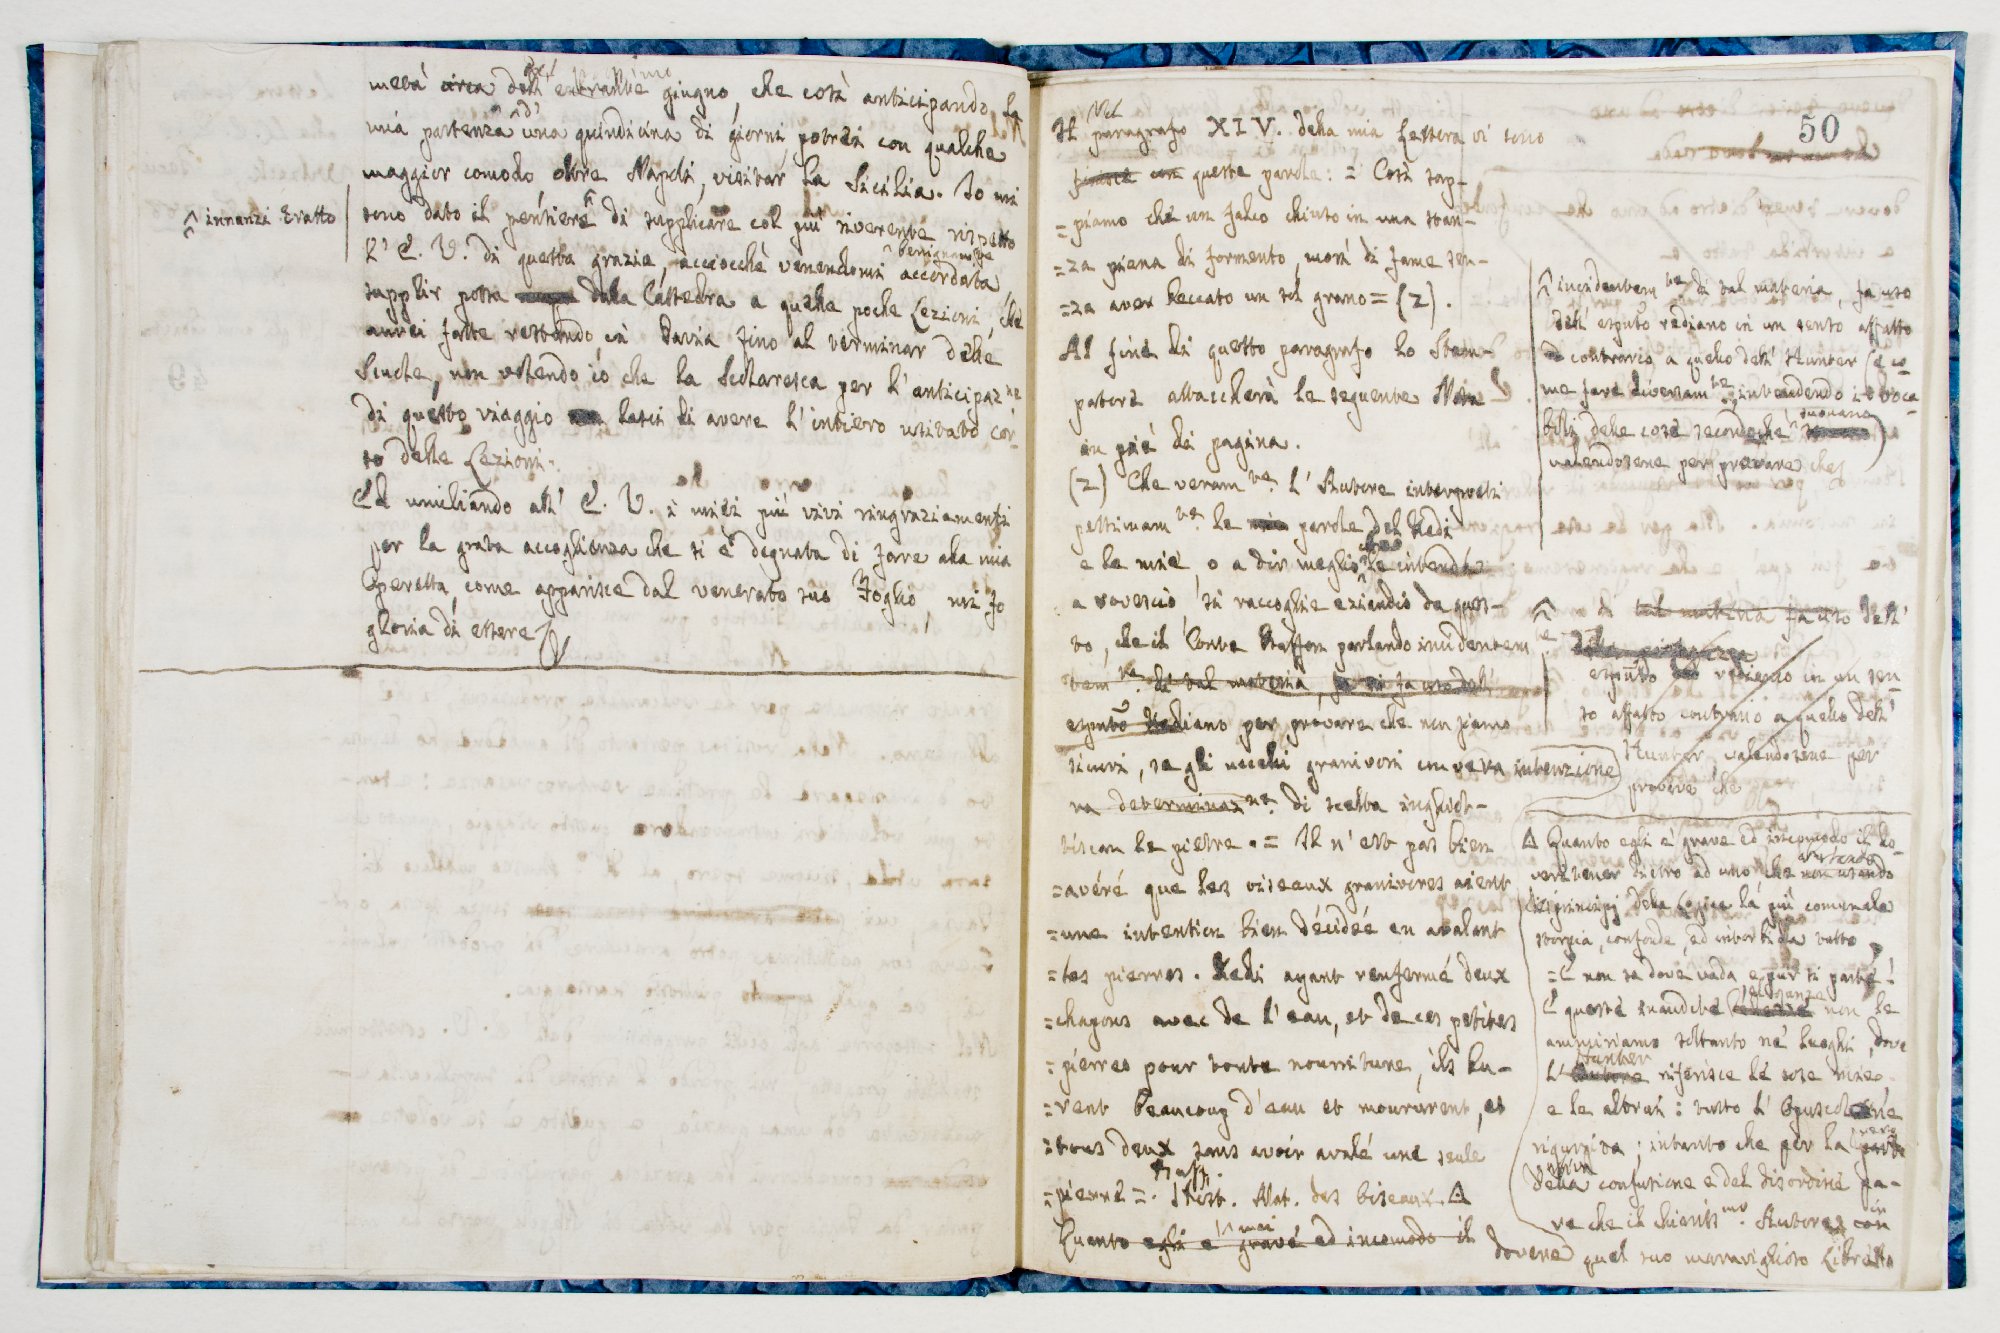 metà circa dell' entrante giugno, che così anticipando la
mia partenza d' una quindicina di giorni potrei con qualche
maggior comodo oltre Napoli, visitar la Sicilia. Io mi
sono dato il pensiere di supplicare col più riverente rispetto
innanzi tratto
l' E. V. di questa grazia, acciocchè venendomi benignamte accordata,
supplir possa dalla Cattedra a quelle poche Lezioni, che
avrei fatte restando in Pavia fino al terminar delle
Scuole, non volendo io che la Scolaresca per l' anticipazne
di questo viaggio lasci di avere l' intiero usitato cor-
so delle Lezioni.
Ed umiliando all' E. V. i miei più vivi ringraziamenti
per la grata accoglienza che si è degnata di fare alla mia
Operetta, come apparisce dal venerato suo Foglio, mi fo
gloria di essere
50
Nel
Il paragrafo XIV. della mia Lettera vi sono
finisce con queste parole: = Così sap-
=piamo che un falco chiuso in una stan-
=za piena di formento, morì di fame sen-
=za aver beccato un sol grano = (z).
Al fine di questo paragrafo lo Stam-
patore attaccherà la seguente Nota
in piè di pagina.
(z) Che veramte. l' Autore interpreti
pessimamte. le parole del Redi
e le mie, o a dir meglio che le intenda
a rovescio si raccoglie eziandio da ques-
to, che il Conte Buffon parlando incidentem
temte. di tal materia, fa uso dell'
esputo Rediano per provare che non siamo
sicuri, se gli uccelli granivori con vera intenzione
na determinazne. di scelta inghiot-
tiscan le pietre. = Il n'est pas bien
=avéré que les oiseaux granivores aient
=une intention bien décidée en avalant
=les pierres. Redi ayant renfermé deux
=chapons avec de l'eau, et de ces petites
=pierres pour toute nourriture, ils bu-
=rent beaucoup d'eau et moururent, et
=tous deux sans avoir avalé une seule
=pierre =. Buff. Hist. Nat. des Oiseaux. Δ
Quanto egli è mai grave ed incomodo il dovere
incidentemte di tal materia, fa uso
dell' esputo rediano in un senso affatto
contrario a quello dell' Hunter (e co-
me fare diversamte. intendendo i voca-
boli delle cose secondochè suonano)
valendosene per provare che
di tal materia fa uso dell'
esputo rediano in un sen-
so affatto contrario a quello dell'
Hunter valendosene per
provare che
Δ Quanto egli è grave ed incomodo il do-
ver tener dietro ad uno che non usando
i principj della Logica la più comunale
storpia, confonde, ed intorbida tutto
=E non sa dove vada e pur si parte!
E queste inaudite non le
ammiriamo soltanto ne' luoghi, dove
l' Autore Hunter riferisce le cose mie,
e le altrui: tutto l' Opuscolo ne
rigurgita; intanto che per la parte
della confusione e del disordine pa-
re che il chiarissmo. Autore con in
quel suo maraviglioso Libretto